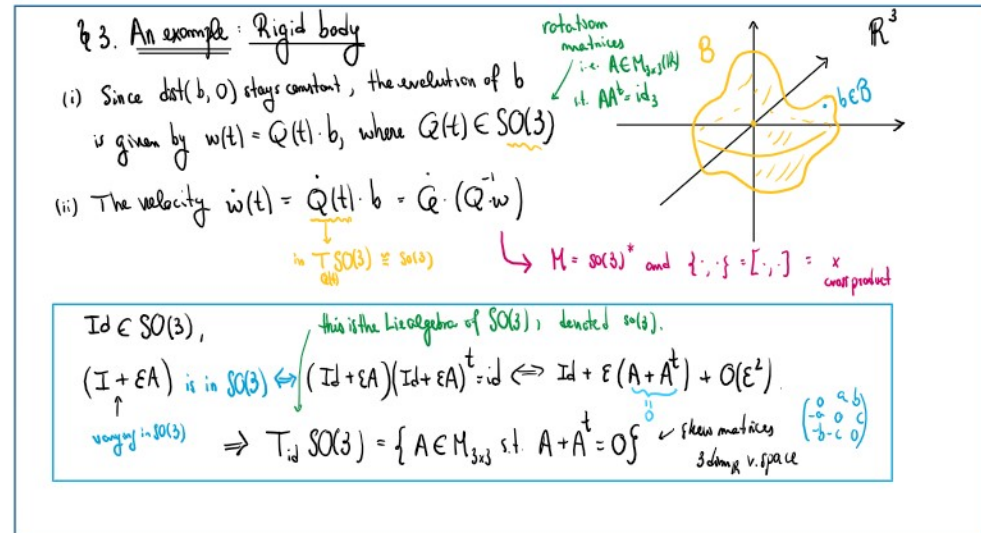 § 3. An example: Rigid body
(i) Since dist(b, 0) stays constant, the evolution of b
is given by w(t) = Q(t) · b, where Q(t) ∈ SO(3)
rotation
matrices
i.e. A ∈ M₃ₓ₃(ℝ)
s.t. AAᵗ = id₃
B
ℝ³
b ∈ B
(ii) The velocity ẇ(t) = Q̇(t) · b = Q̇ · (Q⁻¹ · w)
in T SO(3) ≅ so(3)
Q(t)
↳ M = so(3)* and {·,·} = [·,·] = ×
cross product
Id ∈ SO(3),
this is the Lie algebra of SO(3), denoted so(3).
(I + εA) is in SO(3) ⇔ (Id + εA)(Id + εA)ᵗ = id ⇔ Id + ε(A + Aᵗ) + O(ε²).
= 0
varying in SO(3)
⇒ T_id SO(3) = { A ∈ M₃ₓ₃ s.t. A + Aᵗ = 0 } ↙ skew matrices
3 dim_ℝ v. space
( 0 a b
-a 0 c
-b -c 0 )